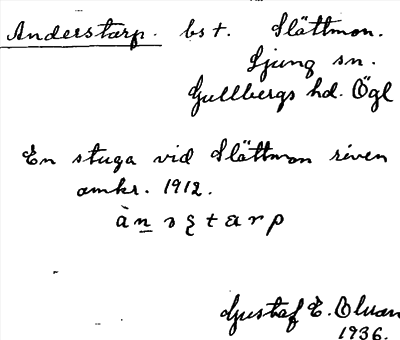 Anderstarp. bst. Slättmon.
Ljung sn.
Gullbergs hd. Ögl
En stuga vid Slättmon riven
omkr. 1912.
Gustaf E.
1936.